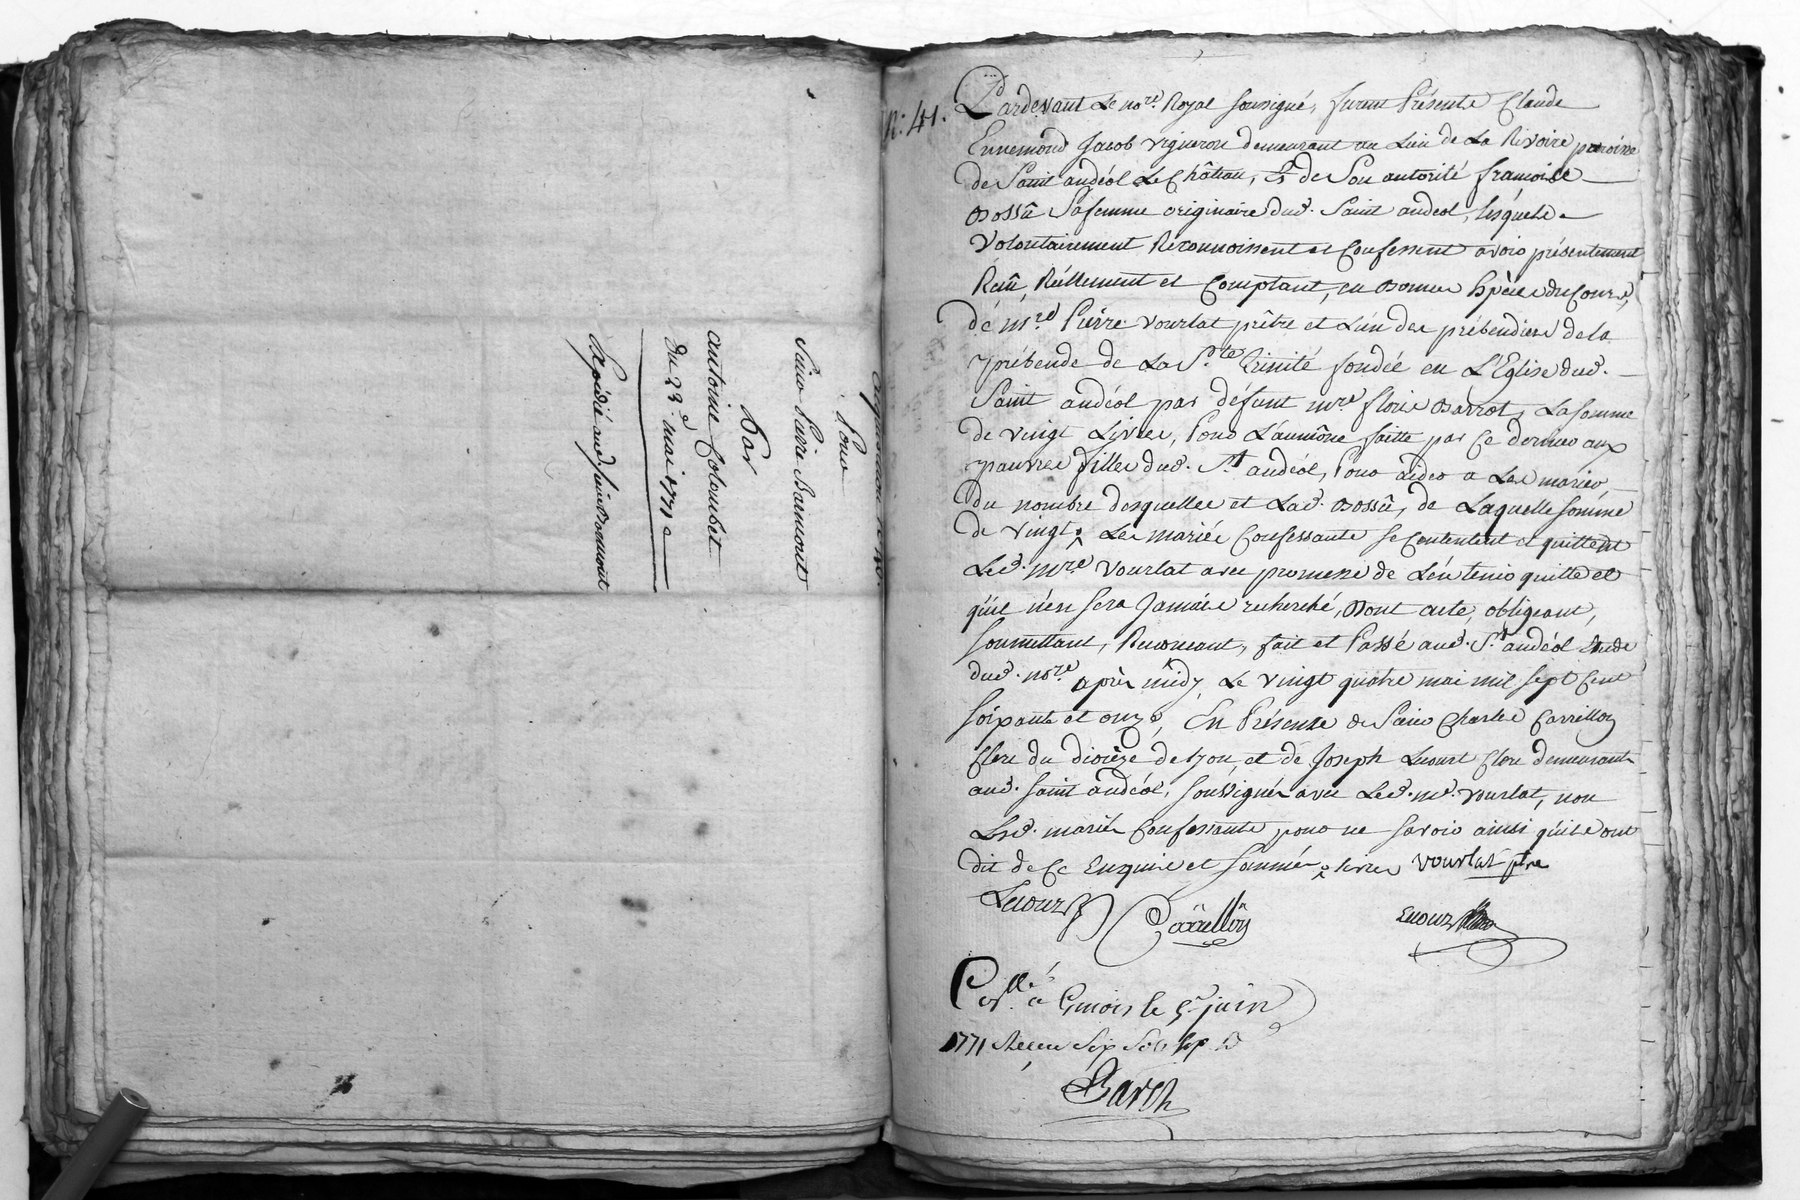 Pour
Sieur Pierre Barmont
Par
Antoine Colombet
du 23e. mai 1771
Expédié aud. Sieur Barmont
N.° 41.
Pardevant Le no.re Royal soussigné, furent Présents Claude
Ennemond Jacob vigneron demeurant au Lieu de La Rivoire paroisse
de Saint andéol Le Château, & de Son autorité francoise
Bossû Sa femme originaire dud. Saint andéol, lesquels
Volontairement Reconnoissent et Confessent avoir présentement
Reçû, Réellement et Comptant, en Bonnes Espèces du Cours,
de m.re Pierre Vourlat prêtre et L'un des prébendiers de la
prébende de La S.te Trinité fondée en L'Eglise dud.
Saint andéol par défunt m.re florie Barrot, La somme
de vingt Livres, Pour L'aumône faitte par Ce dernier aux
pauvres filles dud. S.t andéol, Pour aider a Les marier
du nombre desquelles et Lad. Bossû, de Laquelle Somme
de vingt Les mariés Confessants se Contentent et quittent
Led. m.re Vourlat avec promesse de L'en tenir quitte et
qu'il n'en sera Jamais recherché, Dont acte, obligeant,
Soumettant, Renonceant, fait et Passé aud. S.t andéol Etude
dud. no.re après midy Le vingt quatre mai mil sept Cent
Soixante et onze, En Présence de Sieur Charles Carrellon
Clerc du diocèze de Lyon, et de Joseph Lucour Clerc demeurants
aud. Saint andéol, Soussignés avec Led. m.re Vourlat, non
Lesd. mariés Confessants pour ne Savoir ainsi qu'ils ont
dit de Ce Enquis et Sommés livres Vourlat ptre
Lucour Carrellon
Con.llé a Givors le 5e juin
1771 Receu Six Sols